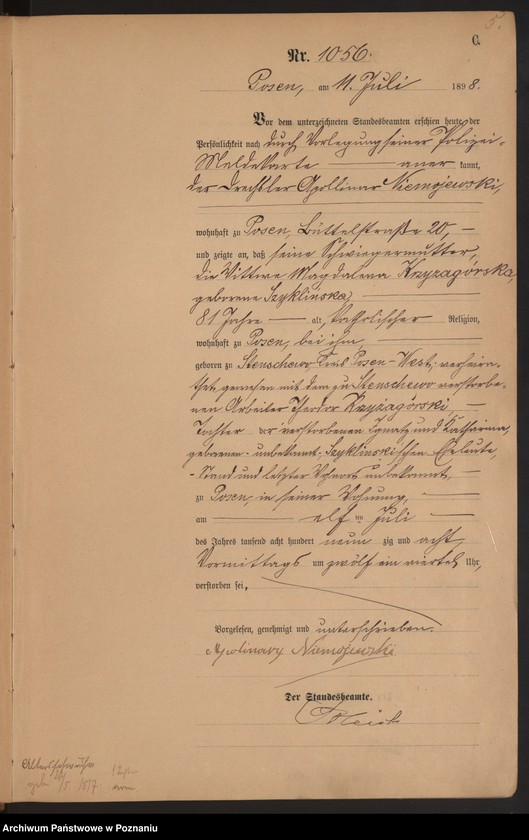 5.
C.
Nr. 1056.
Posen, am 11. Juli 1898.
Vor dem unterzeichneten Standesbeamten erschien heute, der
Persönlichkeit nach durch Vorlegung seiner Polizei-
Meldekarte — aner kannt,
der Drechsler Apollinar Niemojewski,
wohnhaft zu Posen, Büttelstraße 20, —
und zeigte an, daß seine Schwiegermutter,
die Wittwe Magdalena Krzyzagórska,
geborene Szyklinska, —
81 Jahre — alt, katholischer Religion,
wohnhaft zu Posen, bei ihm, —
geboren zu Stenschewo, Kreis Posen-West, verheira-
thet gewesen mit dem zu Stenschewo verstorbe-
nen Arbeiter Theodor Krzyżagórski, —
Tochter der verstorbenen Ignatz und Katharina,
geborenen - unbekannt - Szyklinski'schen Eheleute,
- Stand und letzter Wohnort unbekannt, —
zu Posen, in seiner Wohnung, —
am — elften Juli —
des Jahres tausend acht hundert neun zig und acht,
Vormittags um zwölf ein viertel Uhr,
verstorben sei.
Vorgelesen, genehmigt und unterschrieben.
Apolinary Niemojewski
Der Standesbeamte.
Altersschwäche
geb.
Archiwum Państwowe w Poznaniu